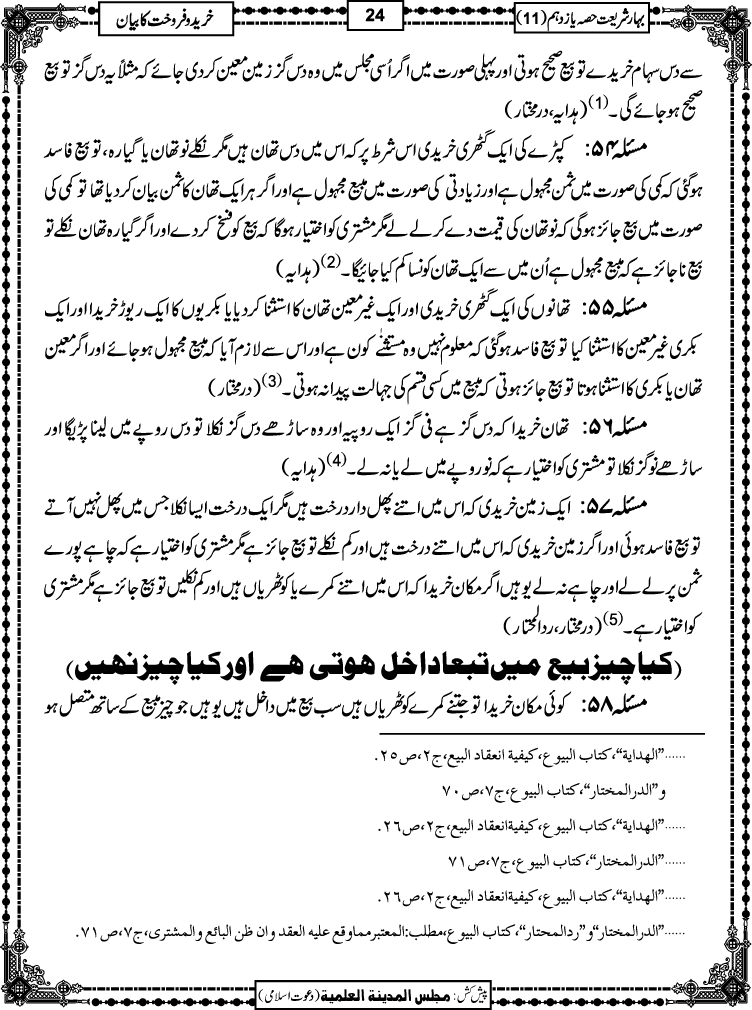 بہار شریعت حصہ یازدہم (11)
24
خرید و فروخت کا بیان
سے دس سہام خریدے تو بیع صحیح ہوتی اور پہلی صورت میں اگر اُسی مجلس میں وہ دس گز زمین معین کر دی جائے کہ مثلاً یہ دس گز تو بیع
صحیح ہو جائے گی۔ (1) (ہدایہ، درمختار)
مسئلہ ۵۴: کپڑے کی ایک گٹھری خریدی اس شرط پر کہ اس میں دس تھان ہیں مگر نکلے نو تھان یا گیارہ، تو بیع فاسد
ہوگئی کہ کمی کی صورت میں ثمن مجہول ہے اور زیادتی کی صورت میں مبیع مجہول ہے اور اگر ہر ایک تھان کا ثمن بیان کر دیا تھا تو کمی کی
صورت میں بیع جائز ہوگی کہ نو تھان کی قیمت دے کر لے لے مگر مشتری کو اختیار ہوگا کہ بیع کو فسخ کر دے اور اگر گیارہ تھان نکلے تو
بیع ناجائز ہے کہ مبیع مجہول ہے اُن میں سے ایک تھان کونسا کم کیا جائیگا۔ (2) (ہدایہ)
مسئلہ ۵۵: تھانوں کی ایک گٹھری خریدی اور ایک غیر معین تھان کا استثنا کر دیا یا بکریوں کا ایک ریوڑ خریدا اور ایک
بکری غیر معین کا استثنا کیا تو بیع فاسد ہوگئی کہ معلوم نہیں وہ مستثنیٰ کون ہے اور اس سے لازم آیا کہ مبیع مجہول ہو جائے اور اگر معین
تھان یا بکری کا استثنا ہوتا تو بیع جائز ہوتی کہ مبیع میں کسی قسم کی جہالت پیدا نہ ہوتی۔ (3) (درمختار)
مسئلہ ۵۶: تھان خریدا کہ دس گز ہے فی گز ایک روپیہ اور وہ ساڑھے دس گز نکلا تو دس روپے میں لینا پڑیگا اور
ساڑھے نو گز نکلا تو مشتری کو اختیار ہے کہ نو روپے میں لے یا نہ لے۔ (4) (ہدایہ)
مسئلہ ۵۷: ایک زمین خریدی کہ اس میں اتنے پھل دار درخت ہیں مگر ایک درخت ایسا نکلا جس میں پھل نہیں آتے
تو بیع فاسد ہوئی اور اگر زمین خریدی کہ اس میں اتنے درخت ہیں اور کم نکلے تو بیع جائز ہے مگر مشتری کو اختیار ہے کہ چاہے پورے
ثمن پر لے لے اور چاہے نہ لے یو ہیں اگر مکان خریدا کہ اس میں اتنے کمرے یا کوٹھریاں ہیں اور کم نکلیں تو بیع جائز ہے مگر مشتری
کو اختیار ہے۔ (5) (درمختار، ردالمحتار)
(کیا چیز بیع میں تبعا داخل ہوتی ہے اور کیا چیز نہیں)
مسئلہ ۵۸: کوئی مکان خریدا تو جتنے کمرے کوٹھریاں ہیں سب بیع میں داخل ہیں یو ہیں جو چیز مبیع کے ساتھ متصل ہو
......"الهداية"، كتاب البيوع، كيفية انعقاد البيع، ج٢، ص٢٥.
و"الدرالمختار"، كتاب البيوع، ج٧، ص٧٠
......"الهداية"، كتاب البيوع، كيفية انعقاد البيع، ج٢، ص٢٦.
......"الدرالمختار"، كتاب البيوع، ج٧، ص٧١
......"الهداية"، كتاب البيوع، كيفية انعقاد البيع، ج٢، ص٢٦.
......"الدرالمختار" و"ردالمحتار"، كتاب البيوع، مطلب: المعتبر مما وقع عليه العقد وان ظن البائع والمشترى، ج٧، ص٧١.
پیش کش: مجلس المدینۃ العلمیۃ (دعوت اسلامی)